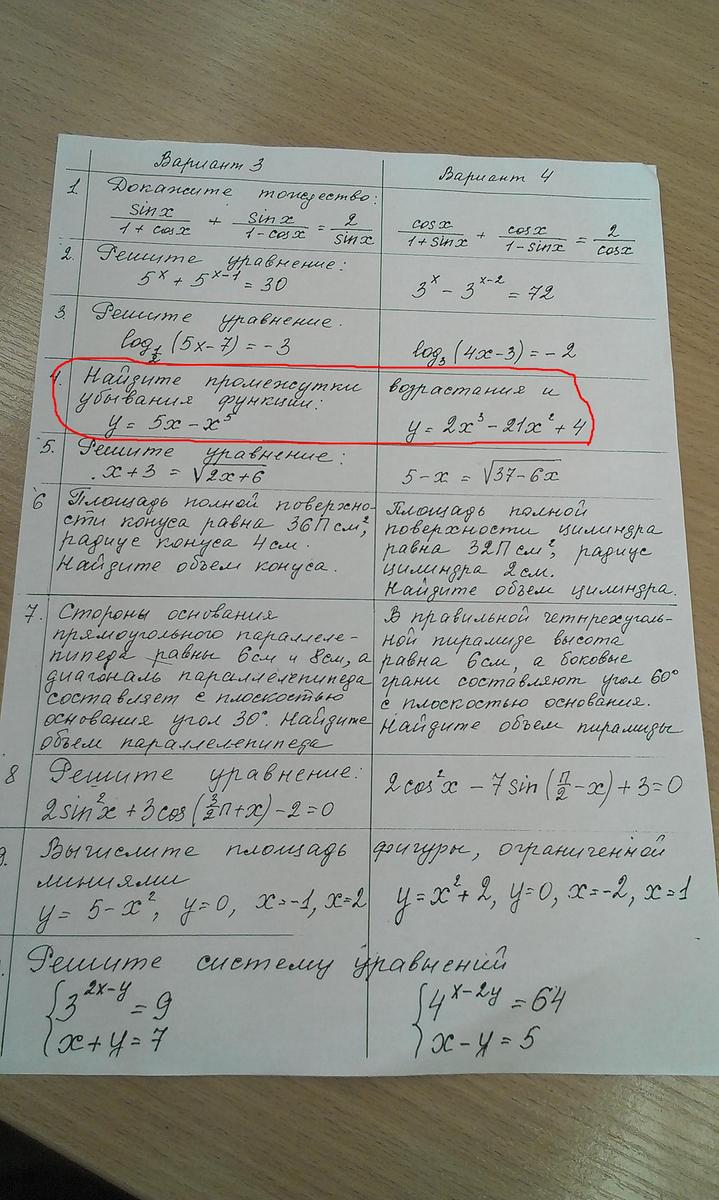 Вариант 3
Вариант 4
1. Докажите тождество:
sinx/(1+cosx) + sinx/(1-cosx) = 2/sinx
cosx/(1+sinx) + cosx/(1-sinx) = 2/cosx
2. Решите уравнение:
5^x + 5^(x-1) = 30
3^x - 3^(x-2) = 72
3. Решите уравнение.
log_(1/2) (5x-7) = -3
log_3 (4x-3) = -2
4. Найдите промежутки возрастания и
убывания функции:
y = 5x - x^5
y = 2x^3 - 21x^2 + 4
5. Решите уравнение:
x+3 = √(2x+6)
5-x = √(37-6x)
6 Площадь полной поверхно-
сти конуса равна 36П см²,
радиус конуса 4 см.
Найдите объем конуса.
Площадь полной
поверхности цилиндра
равна 32П см², радиус
цилиндра 2 см.
Найдите объем цилиндра.
7. Стороны основания
прямоугольного параллеле-
пипеда равны 6см и 8см, а
диагональ параллелепипеда
составляет с плоскостью
основания угол 30°. Найдите
объем параллелепипеда
В правильной четырехуголь-
ной пирамиде высота
равна 6см, а боковые
грани составляют угол 60°
с плоскостью основания.
Найдите объем пирамиды
8 Решите уравнение:
2sin²x + 3cos(3/2П+x) - 2 = 0
2cos²x - 7sin(П/2 - x) + 3 = 0
9. Вычислите площадь фигуры, ограниченной
линиями
y = 5-x², y=0, x=-1, x=2
y = x²+2, y=0, x=-2, x=1
Решите систему уравнений
{ 3^(2x-y) = 9
x+y = 7
{ 4^(x-2y) = 64
x-y = 5